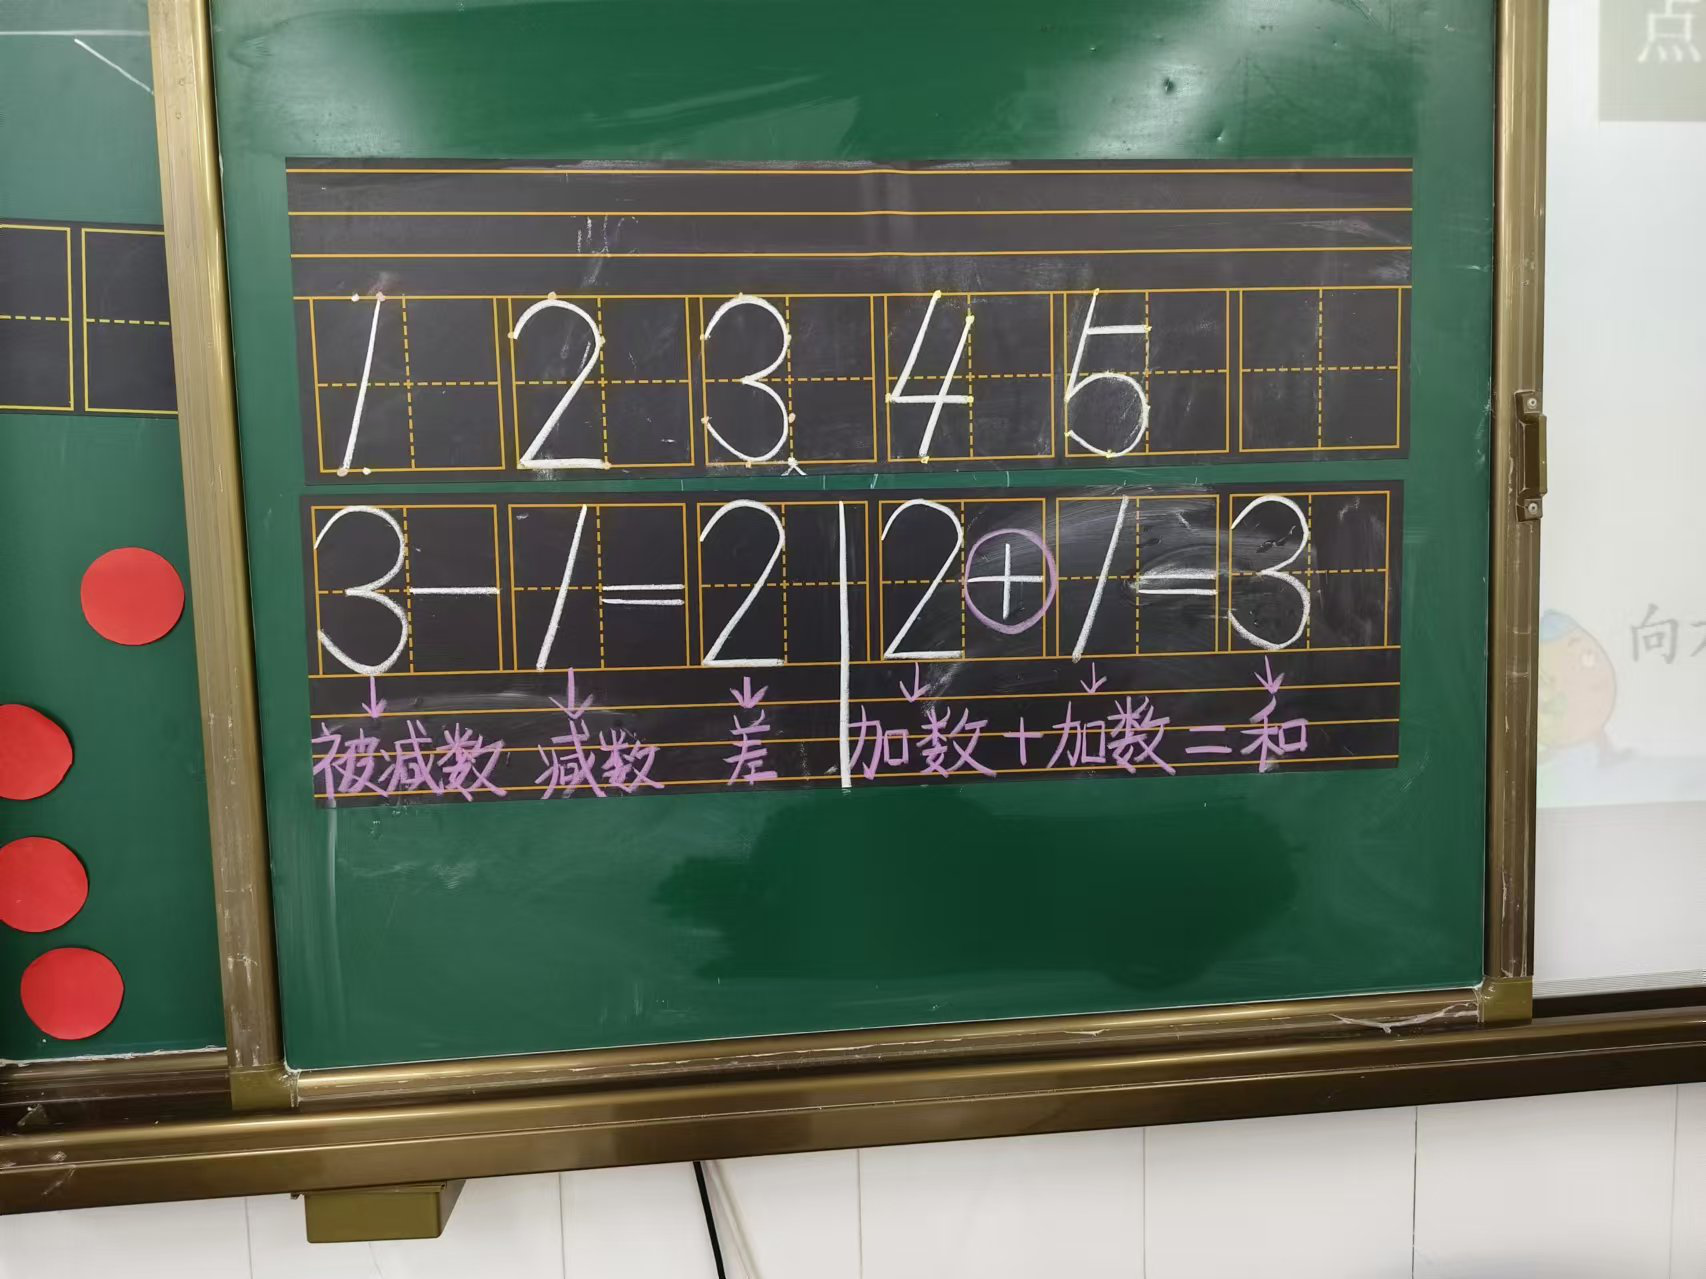 点
1 2 3 4 5
3-1=2 2+1=3
被减数 减数 差 加数+加数=和
向